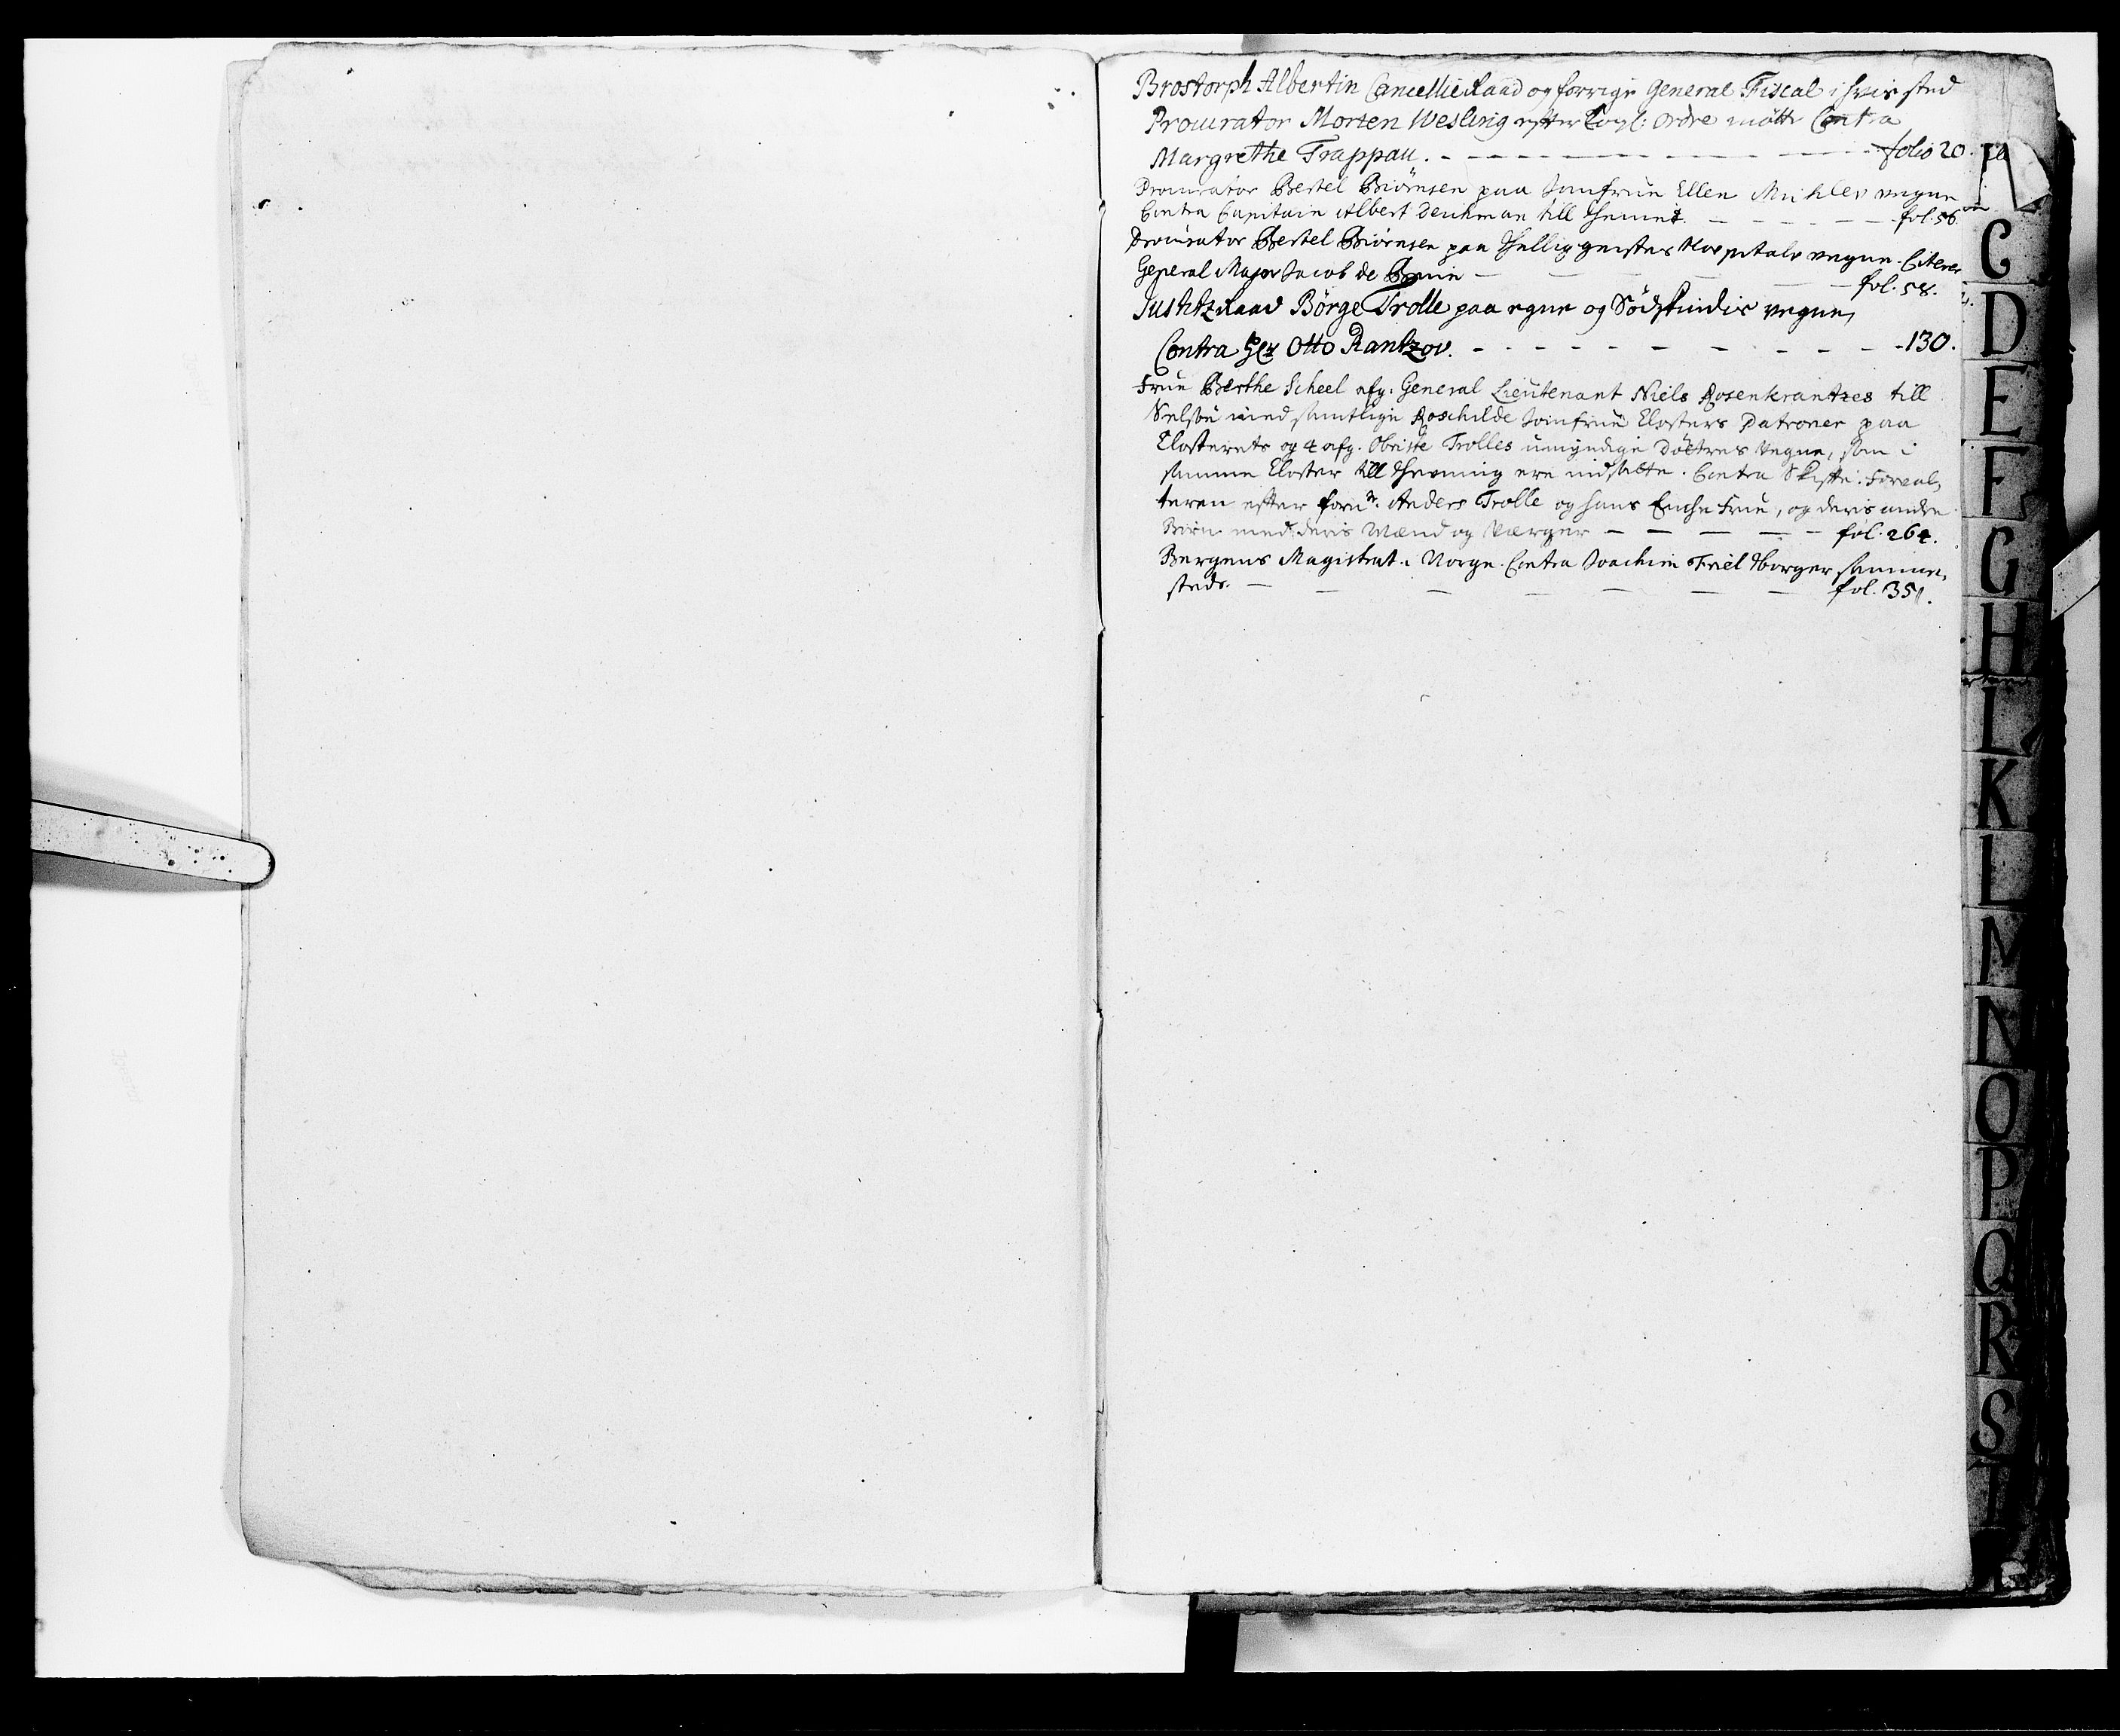 Brostorph Albertin Cancellie Raad og forrige General Fiscal i hvis sted
Procurator Morten Wesling efter Kongl: Ordre mötte Contra
Margrethe Trappau. folio 20.
Procurator Bertel Biörnsen paa Jomfrue Ellen vegne
Contra Capitain Albert till fol. 56
Procurator Bertel Biörnsen paa Helliggeistes Hospitals vegne. Citerer
General Major Jacob de fol. 58.
Justitz Raad Börge Trolle paa egne og Södskindis vegne,
Contra Hr Otto Rantzov. 130.
Frue Berthe Scheel afg. General Lieutenant Niels Rosenkrantzes till
Selsöe med samtlige Roschilde Jomfrue Closters Patroner paa
Closterets og 4 afg. Obriste Trolles umyndige Döttres Vegne, som i
samme Closter till ere indsatte. Contra Skifte: Forval,
teren efter Anders Trolle og hans Enche Frue, og deris andre
Börn med deris Mænd og Værger fol. 264.
Bergens Magistrat i Norge Contra Joachim Friel Borger samme,
steds. fol. 351.
C
D
E
F
G
H
I
K
L
M
N
O
P
Q
R
S
T